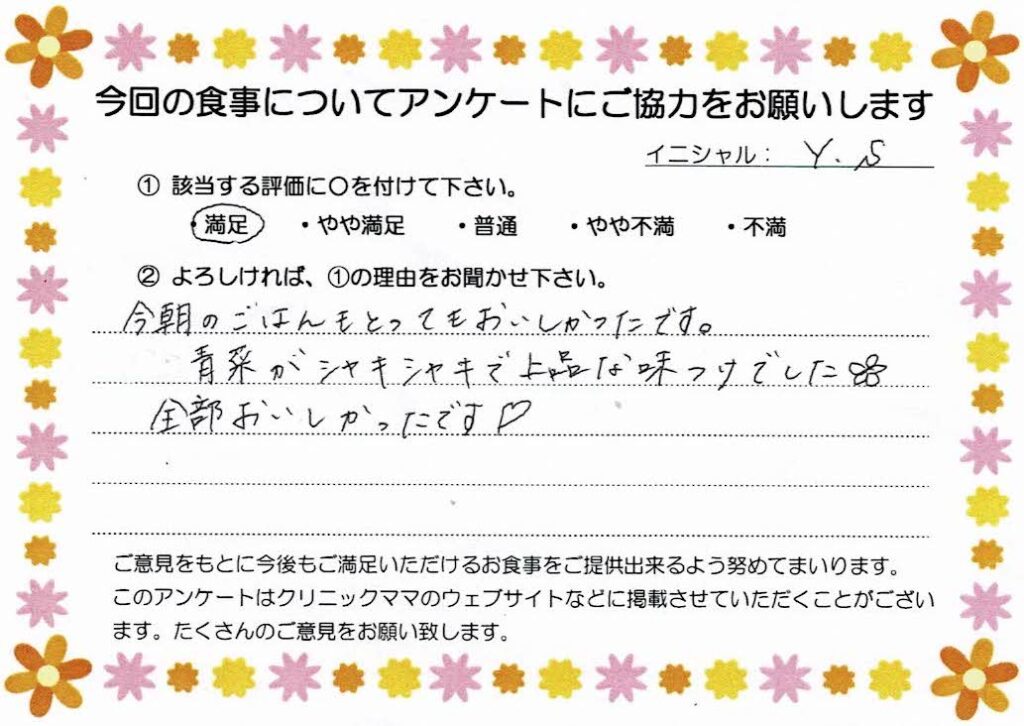 今回の食事についてアンケートにご協力をお願いします
イニシャル： Y.S
① 該当する評価に〇を付けて下さい。
・満足 ・やや満足 ・普通 ・やや不満 ・不満
② よろしければ、①の理由をお聞かせ下さい。
今朝のごはんもとってもおいしかったです。
青菜がシャキシャキで上品な味つけでした
全部おいしかったです♡
ご意見をもとに今後もご満足いただけるお食事をご提供出来るよう努めてまいります。
このアンケートはクリニックママのウェブサイトなどに掲載させていただくことがござい
ます。たくさんのご意見をお願い致します。